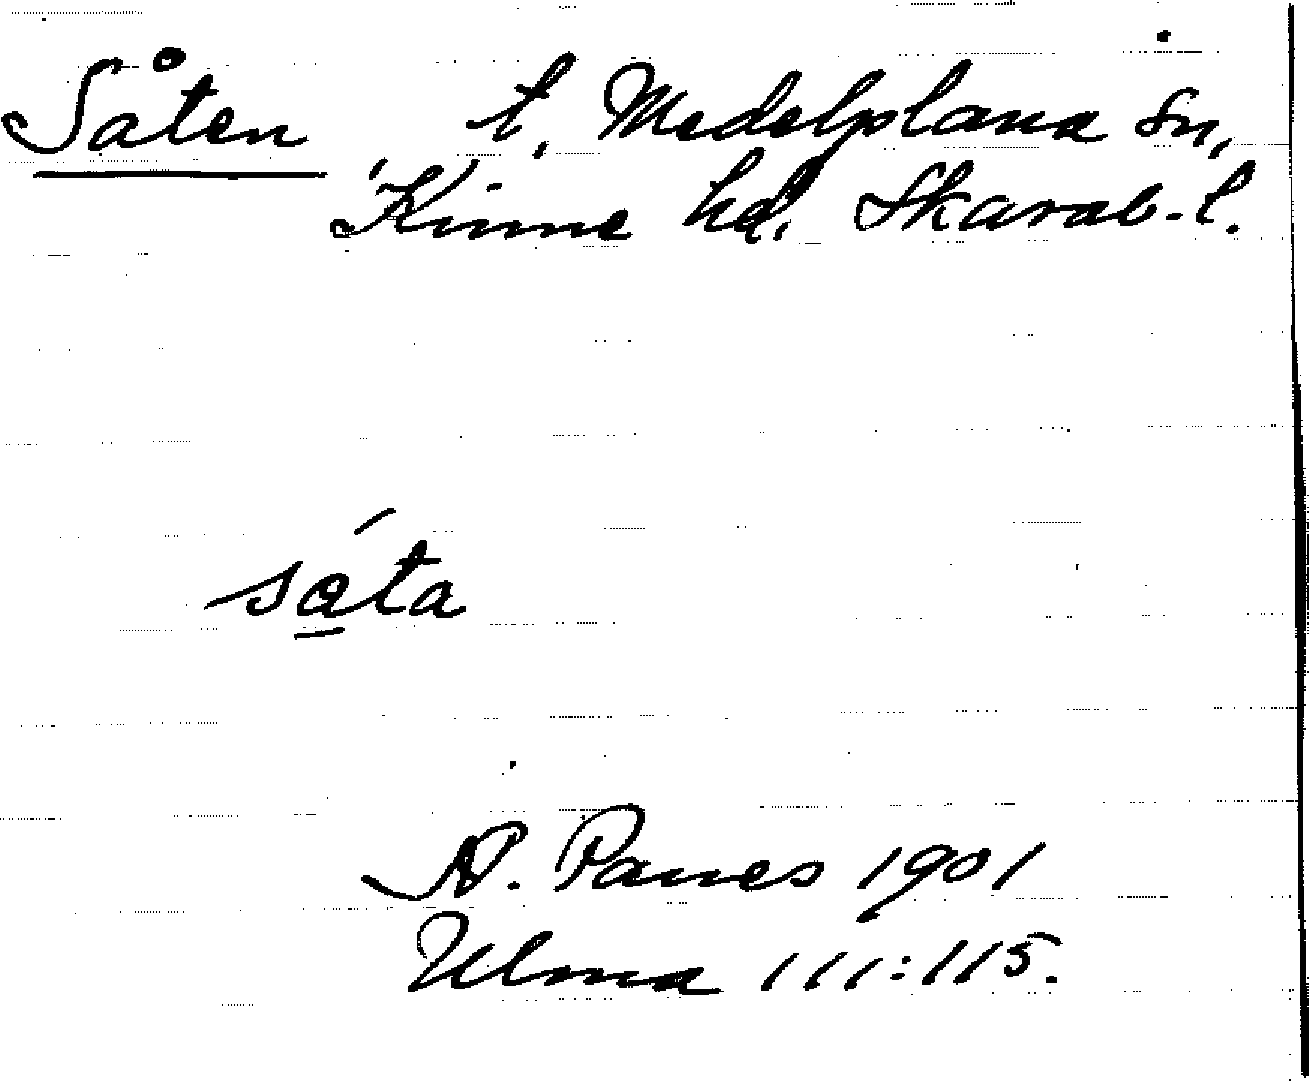 Såten t, Medelplana sn,
Kinne hd, Skarab-l.
såta
N. Panes 1901
Ulma 111:115.